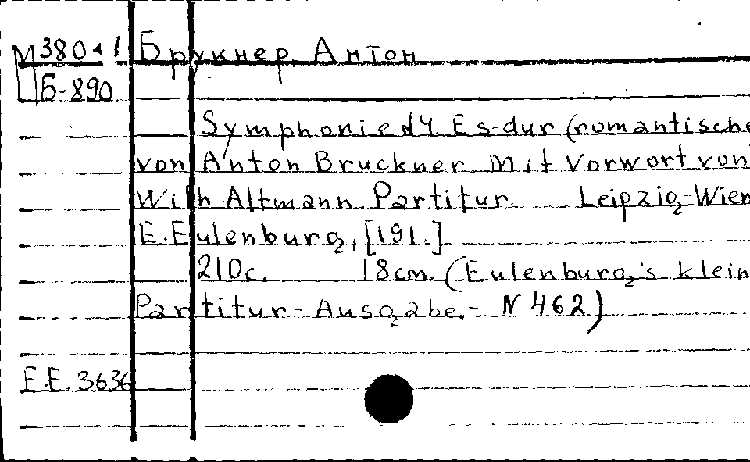 М380-1 Брукнер, Антон
Б-890
Symphonie d4 Es-dur (romantische
von Anton Bruckner Mit Vorwort von
Wilh Altmann Partitur Leipzig-Wien
E. Eulenburg, [191.]
210c. 18cm. (Eulenburg's klein
Partitur-Ausgabe.- N 462)
E.E. 3636